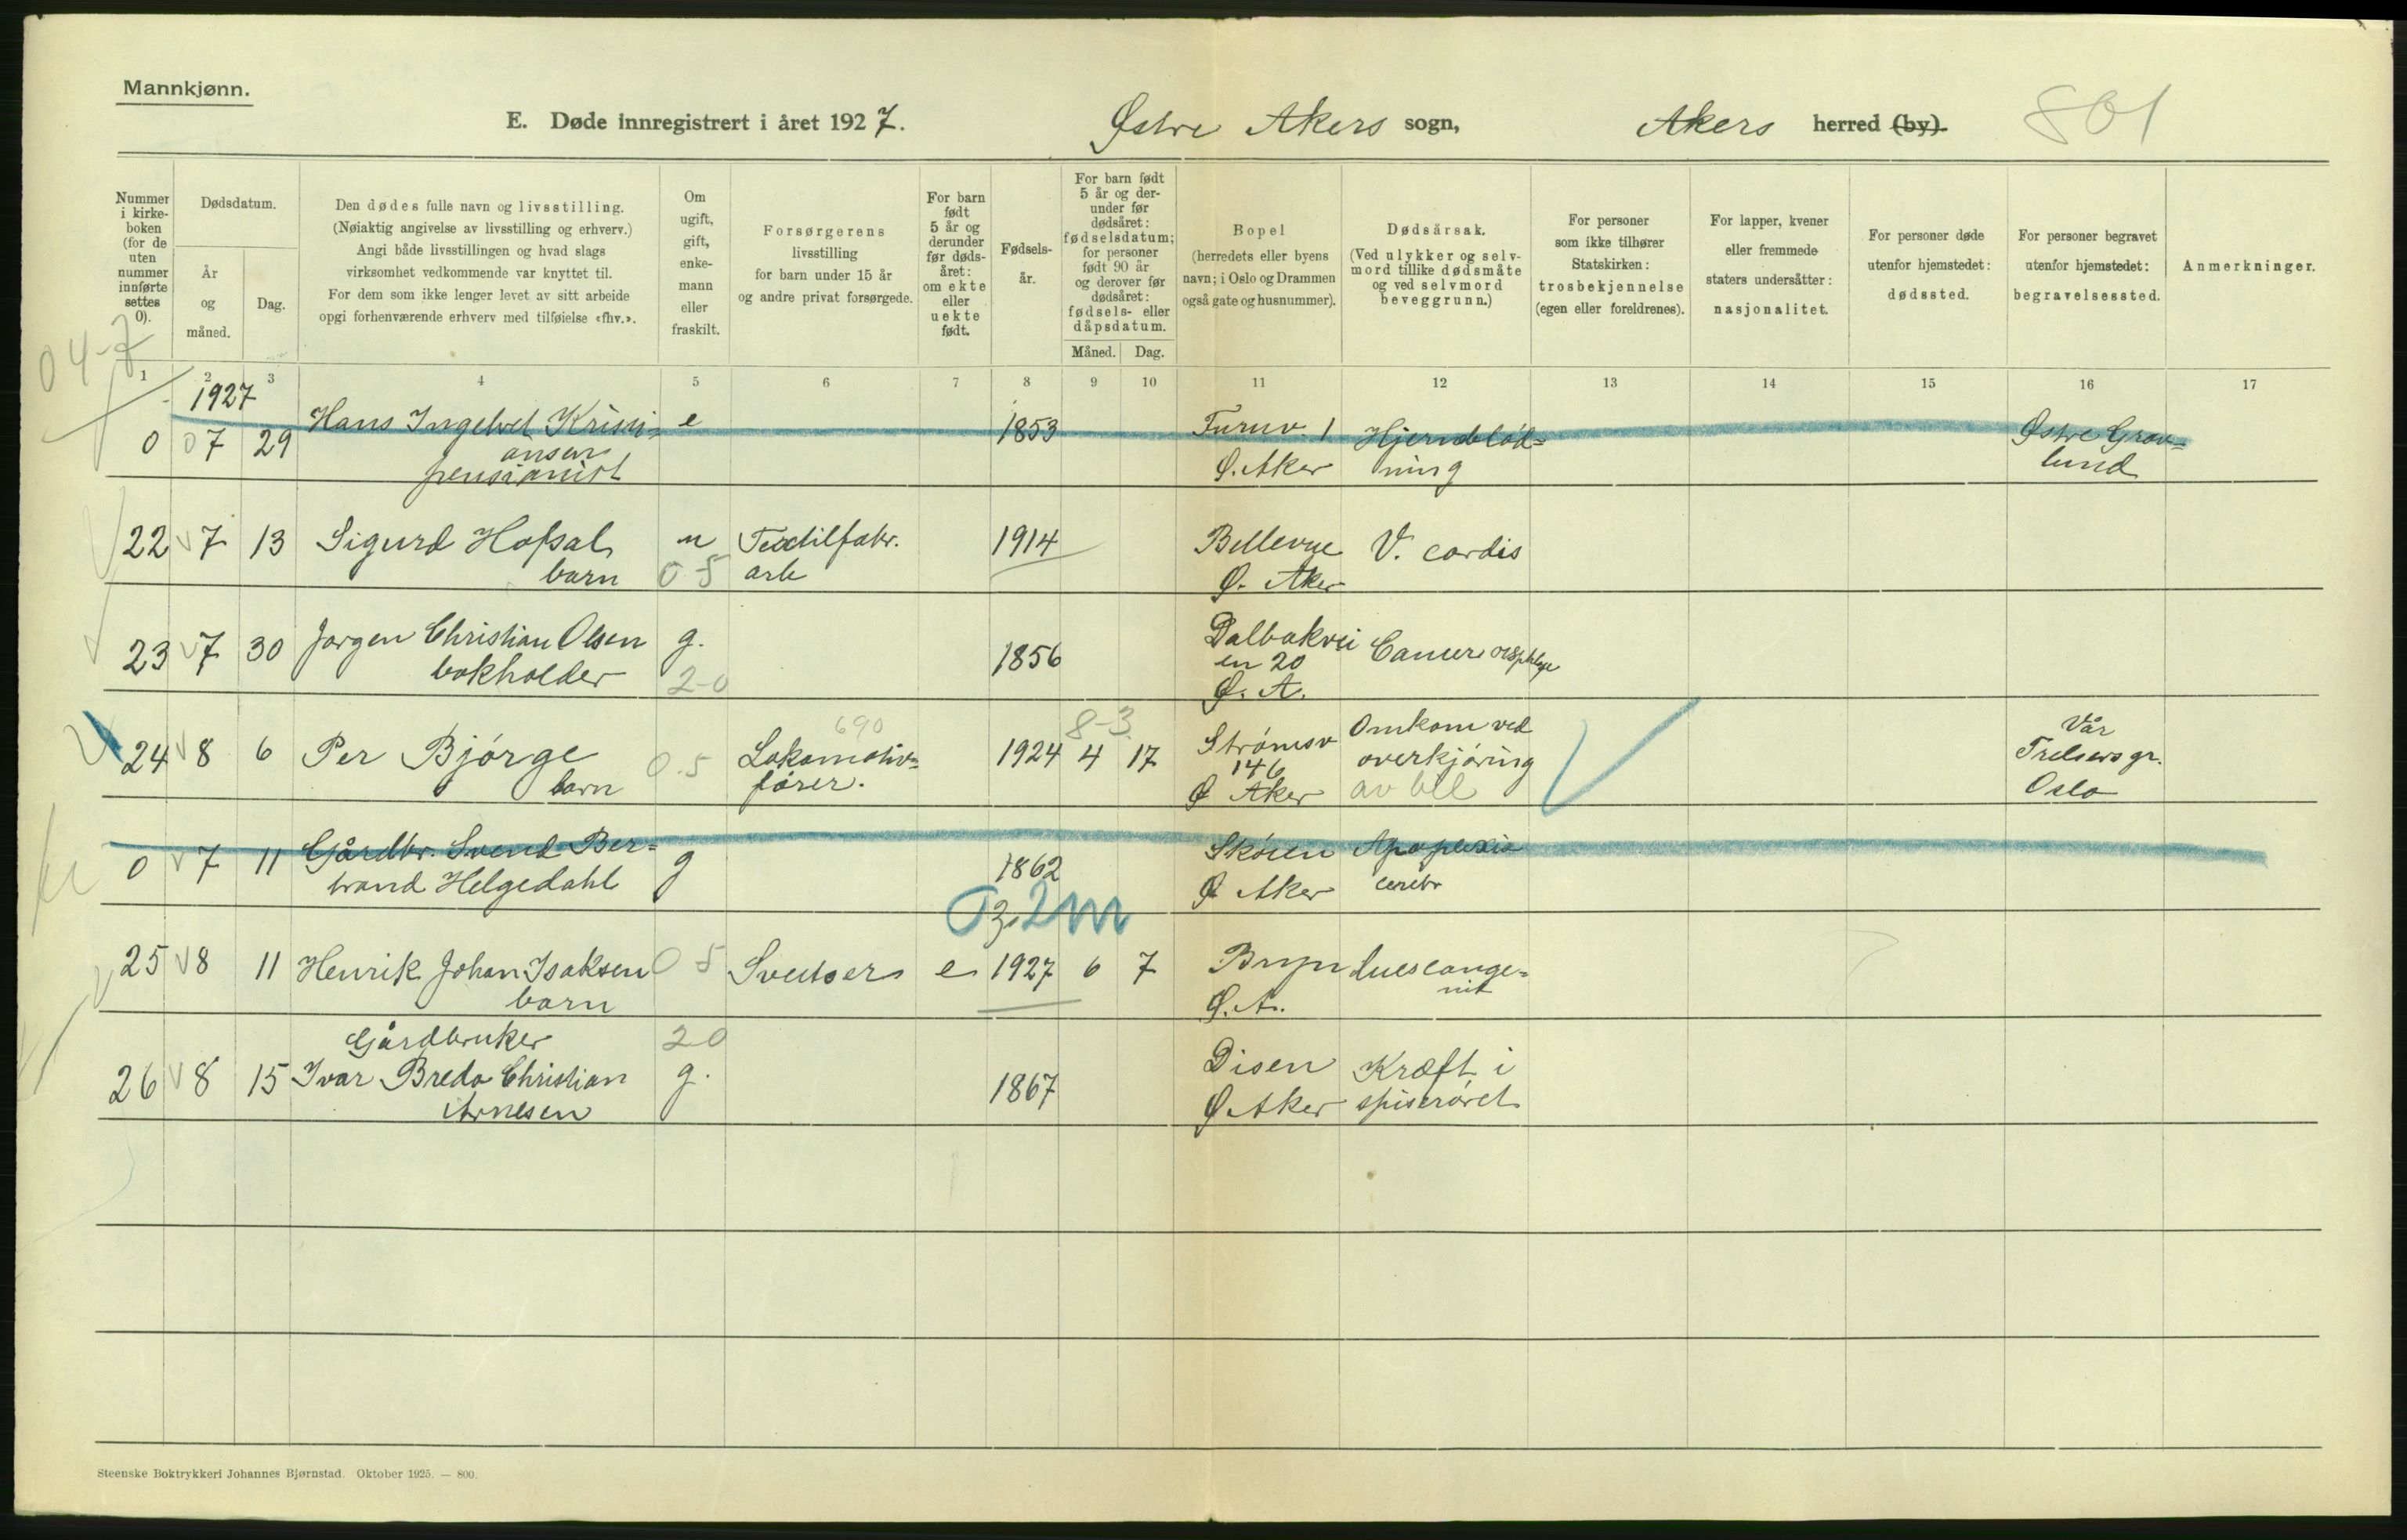 Mannkjønn.
E. Døde innregistrert i året 1927. Østre Akers sogn, Akers herred (by). 801
Nummer i kirke-boken (for de uten nummer innførte settes 0).
Dødsdatum.
År og måned.
Dag.
Den dødes fulle navn og livsstilling.
(Nøiaktig angivelse av livsstilling og erhverv.)
Angi både livsstillingen og hvad slags
virksomhet vedkommende var knyttet til.
For dem som ikke lenger levet av sitt arbeide
opgi forhenværende erhverv med tilføielse «fhv.».
Om ugift, gift, enke-mann eller fraskilt.
Forsørgerens
livsstilling
for barn under 15 år
og andre privat forsørgede.
For barn født 5 år og derunder før døds-året: om ekte eller uekte født.
Fødsels-år.
For barn født 5 år og der-under før dødsåret: fødselsdatum; for personer født 90 år og derover før dødsåret: fødsels- eller dåpsdatum.
Måned. Dag.
Bopel
(herredets eller byens
navn; i Oslo og Drammen
også gate og husnummer).
Dødsårsak.
(Ved ulykker og selv-
mord tillike dødsmåte
og ved selvmord
beveggrunn.)
For personer
som ikke tilhører
Statskirken:
trosbekjennelse
(egen eller foreldrenes).
For lapper, kvener
eller fremmede
staters undersåtter:
nasjonalitet.
For personer døde
utenfor hjemstedet:
dødssted.
For personer begravet
utenfor hjemstedet:
begravelsessted.
Anmerkninger.
04-7
1 2 3 4 5 6 7 8 9 10 11 12 13 14 15 16 17
1927
0 07 29 Hans Ingelvet Kristi- e 1853 Furuv. 1 Hjerneblød= Østre Grav=
ansen Ø. Aker ning lund
pensionist
22 7 13 Sigurd Hofsal u Textilfabr. 1914 Bellevue V. cordis
barn 05 arb Ø. Aker
23 7 30 Jørgen Christian Olsen g. 1856 Dalbakvei Cancer oesophage
bokholder 2-0 en 20
Ø. A.
690 8-3
24 8 6 Per Bjørge 0.5 Lokomotiv= 1924 4 17 Strømsv Omkom ved Vår
barn fører. 146 overkjøring Frelsers gr.
Ø Aker av bil Oslo
0 7 11 Gårdbr. Svend Ber= g 1862 Skøien Apoplexia
trand Helgedahl Ø Aker cerebr
03. 2m
25 8 11 Henrik Johan Isaksen 05 Sveitser e 1927 6 7 Bryn Lues conge=
barn Ø. A. nit
Gårdbruker 20
26 8 15 Ivar Breda Christian g. 1867 Disen Kræft i
Arnesen Ø. Aker spiserøret
Steenske Boktrykkeri Johannes Bjørnstad. Oktober 1925. — 800.